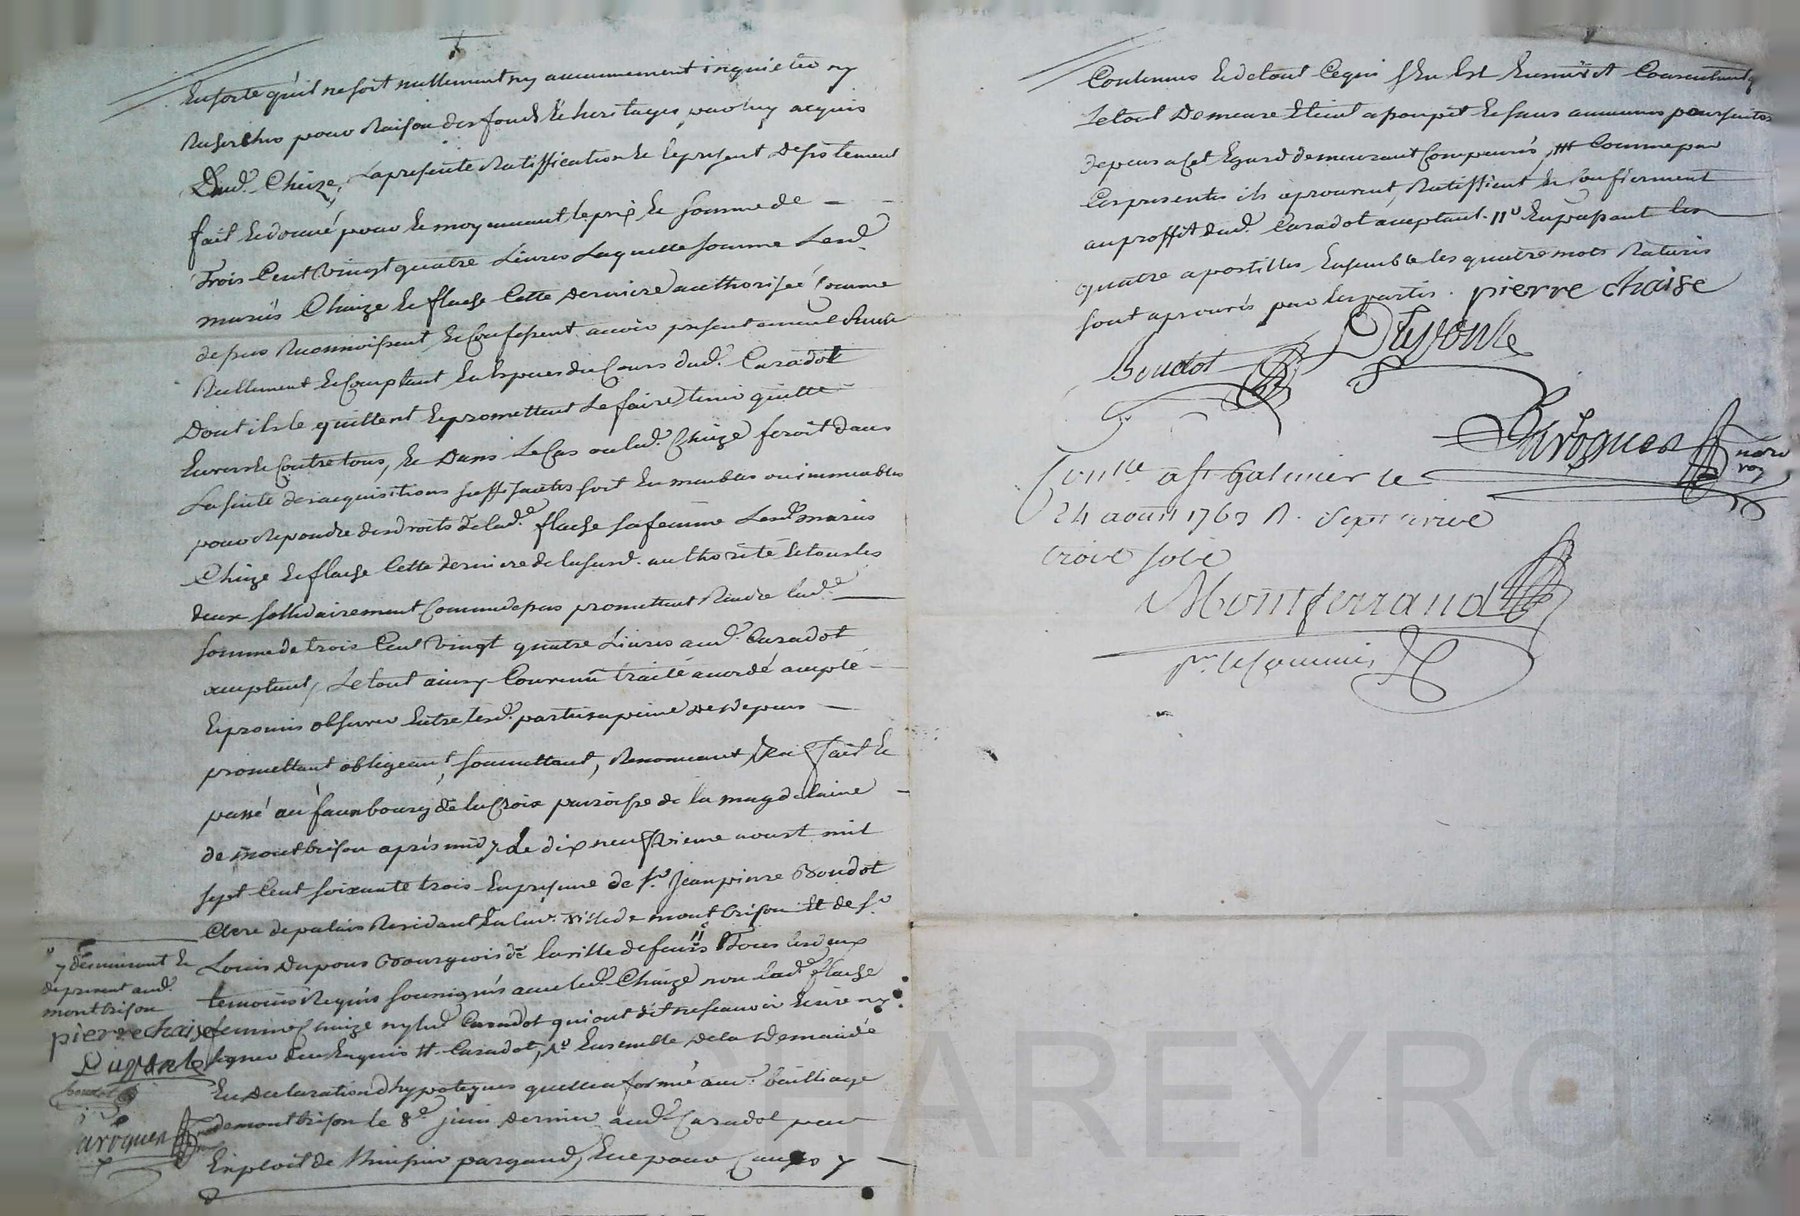 Ensorte qu'il ne soit nullement ny aucunement inquietéé ny
Recherchés pour Raison des fonds & heritages par luy acquis
Dud. Chieze, La presente Ratiffication & le present desistement
fait & donné pour & moyennant le prix & somme de
Trois Cent Vingt quatre Livres Laquelle somme Lesd.
mariés Chieze & flache Cette derniere authorisée comme
depuis Reconnoissent & Confessent avoir presentement
Reellement & Comptant En Especes du Cours dud. Caradot
Dont ils le quittent & promettent Le faire tenir quitte
Envers & Contre tous, & Dans Le Cas ou led. Chieze feroit dans
La suite des acquisitions suffisantes soit En meubles ou immeubles
pour Repondre des droits de lad. flache sa femme Lesd. mariés
Chieze & flache Cette derniere de lasusd. authorité & tous les
deux sollidairement Comme depuis promettent Rendre lad.
somme de trois Cent Vingt quatre Livres aud. Caradot
acceptant, Le tout ainsy Convenu traité accordé accepté
& promis observer Entre lesd. parties a peine de depens
promettant obligeant, soumettant, Renonceant &c fait &
passé au fauxbourg de la Croix paroisse de la magdelaine
de montbrison aprés midy Le dix neufvieme aoust mil
sept Cent soixante trois En presence de sr. Jean pierre Boudot
Clerc de palais Residant En lad. Ville de montbrison Et de sr.
Louis Dupons Bourgeois de la ville de feurs Tous les deux
temoins Requis soussignés avec led. Chieze non lad. flache
femme Chieze ny led. Caradot qui ont dit ne scavoir Ecrire ny
signer de ce Enquis # Caradot, Ensemble de la Demande
En declaration dhypoteques quelle a formé au. bailliage
de montbrison le 8e. juin dernier aud. Caradot par
Exploit de pargaud, & pour Causes y
y demeurant &
de present aud.
montbrison
pierre chaise
Boudot
Contenues & de tout Ce qui s'En Est Ensuivit Consentant q
Le tout Demeure Eteint assoupit & sans aucunes poursuites
depens a Cet Egard demeurant Compensés, # Comme par
Ces presentes ils aprouvent, Ratiffient & Confirment
au proffit dud. Caradot acceptant. En passant les
quatre apostilles Ensemble les quatre mots Raturés
sont aprouvés par les parties. pierre chaise
Boudot
Barogues
nore
roy
Conlle a st Galmier le
24 aoust 1763 R. Sept livre
trois sols
Montferrand
pr le Commis
CHAREYRO